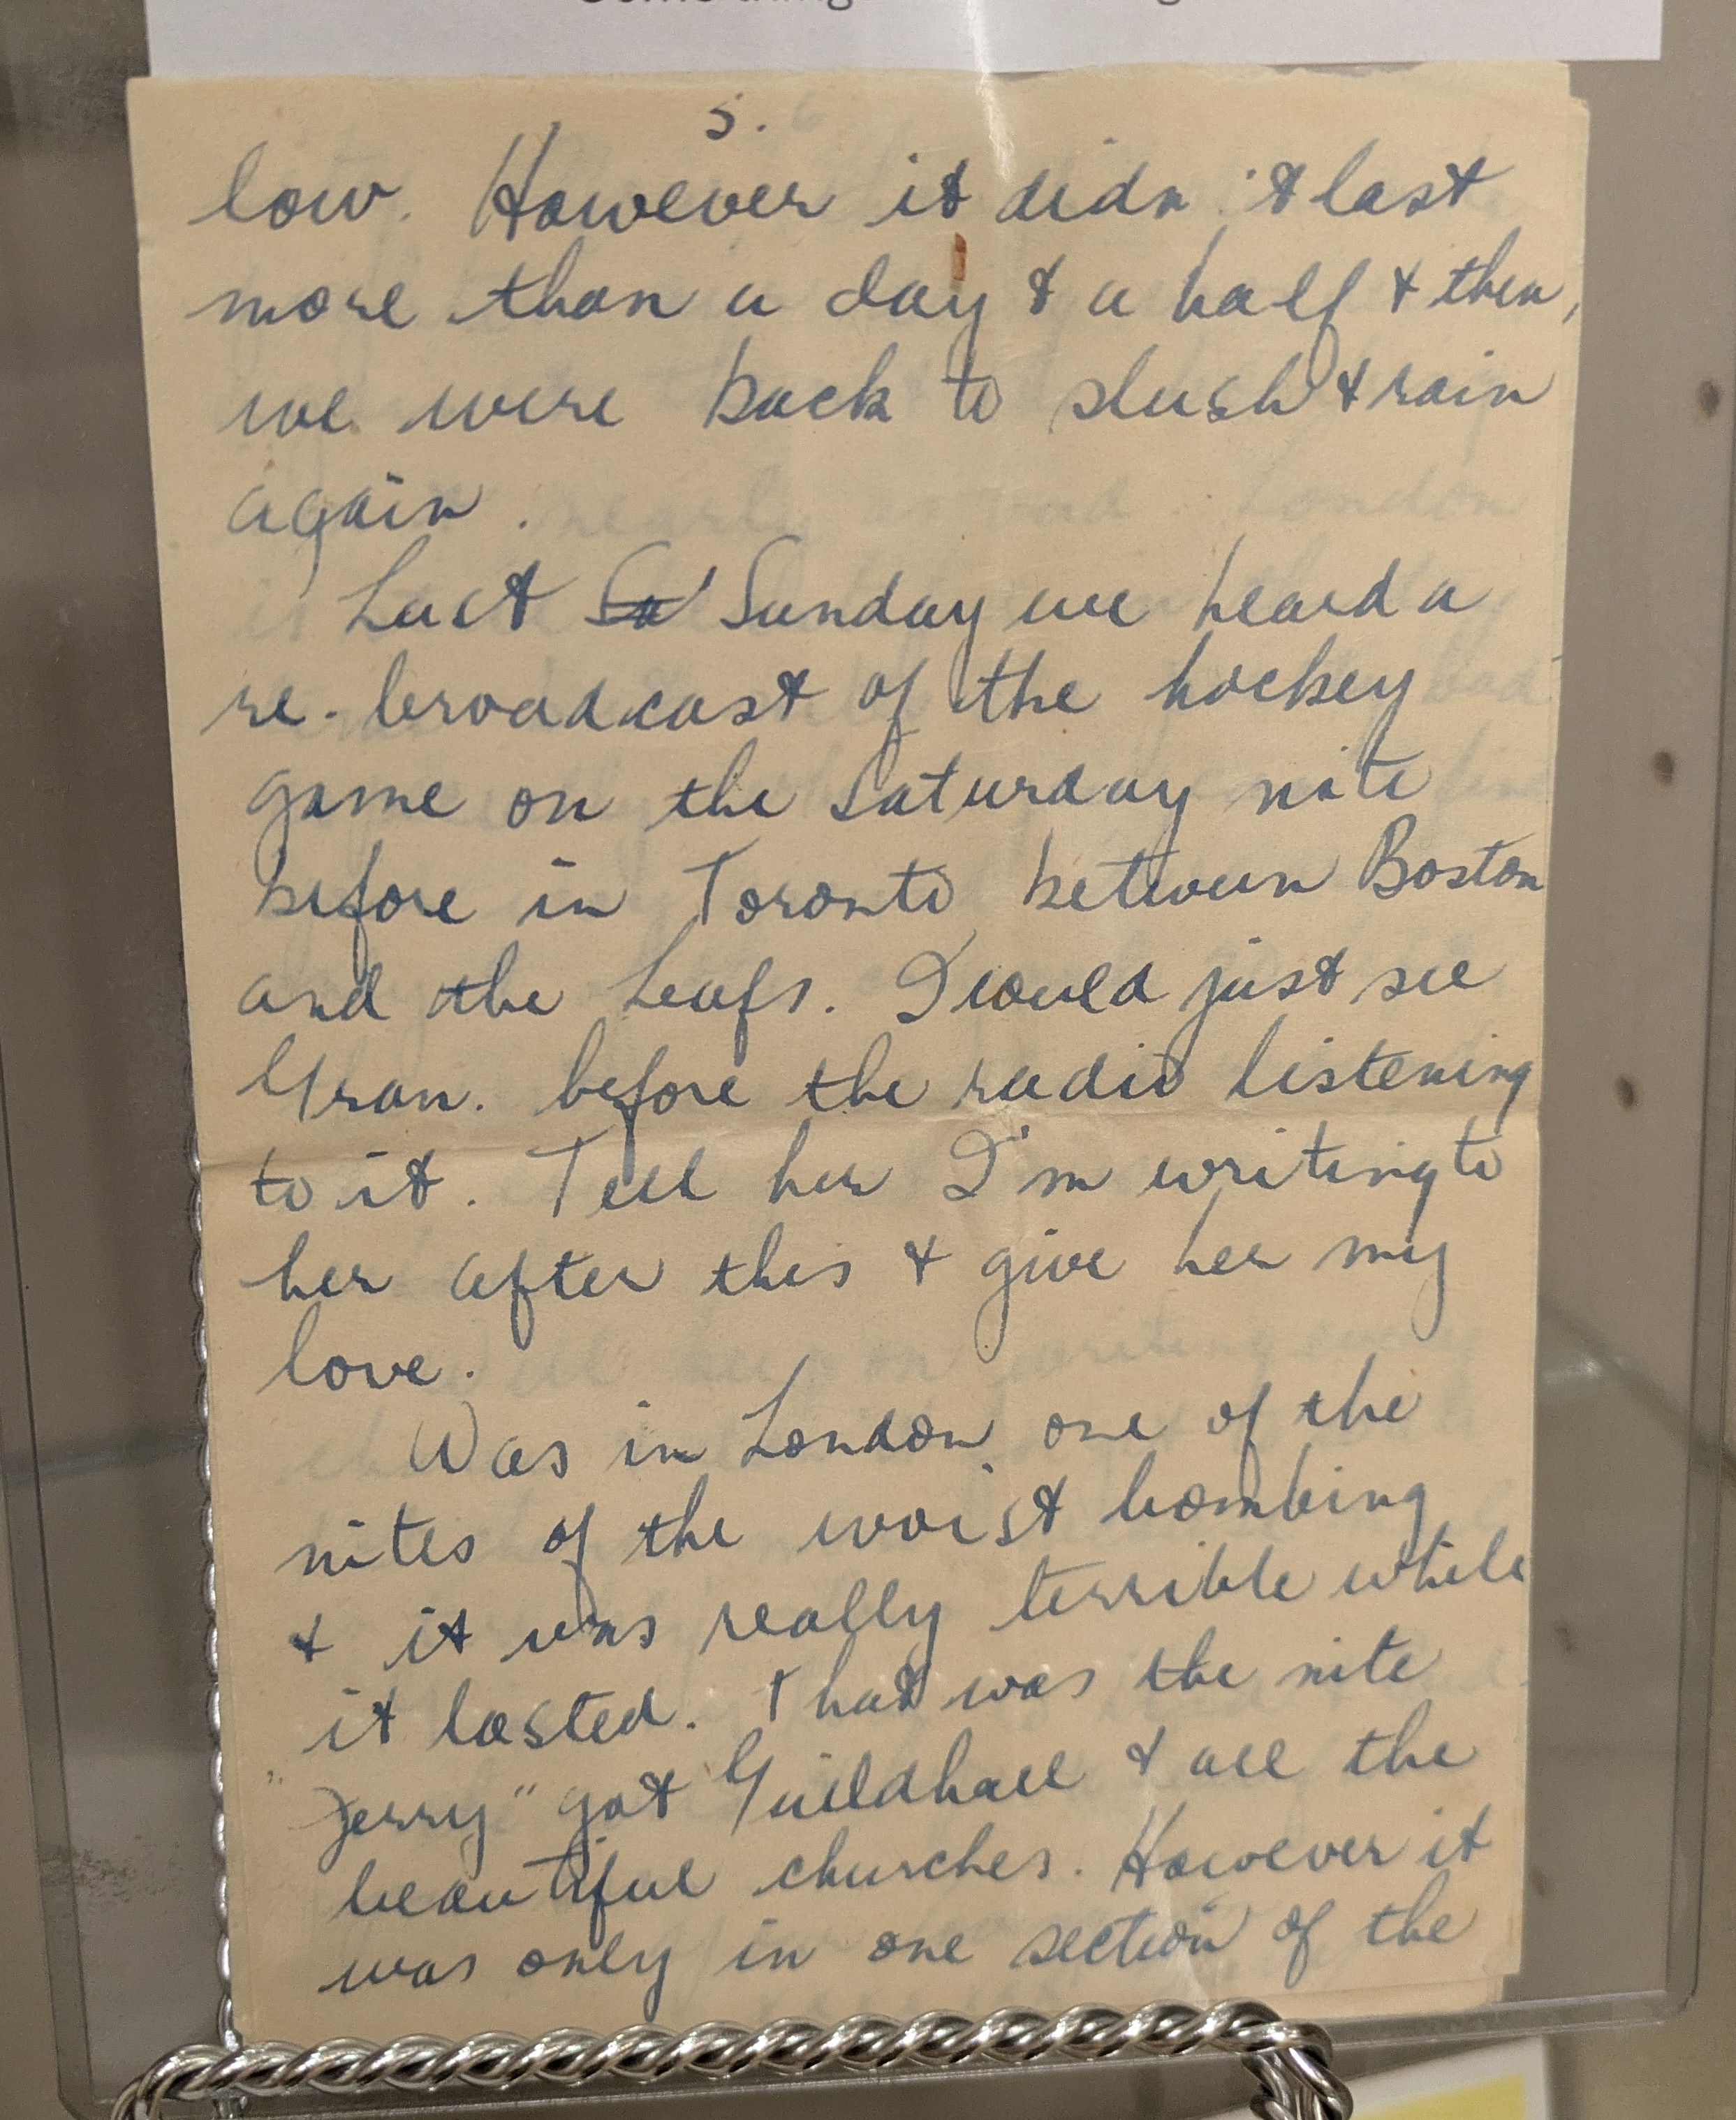 5.
low. However it didn't last
more than a day & a half & then,
we were back to slush & rain
again.
Last Sa Sunday we heard a
re-broadcast of the hockey
game on the Saturday nite
before in Toronto between Boston
and the Leafs. I could just see
Gran. before the radio listening
to it. Tell her I'm writing to
her after this & give her my
love.
Was in London one of the
nites of the worst bombing
& it was really terrible while
it lasted. That was the nite
"Jerry" got Guildhall & all the
beautiful churches. However it
was only in one section of the